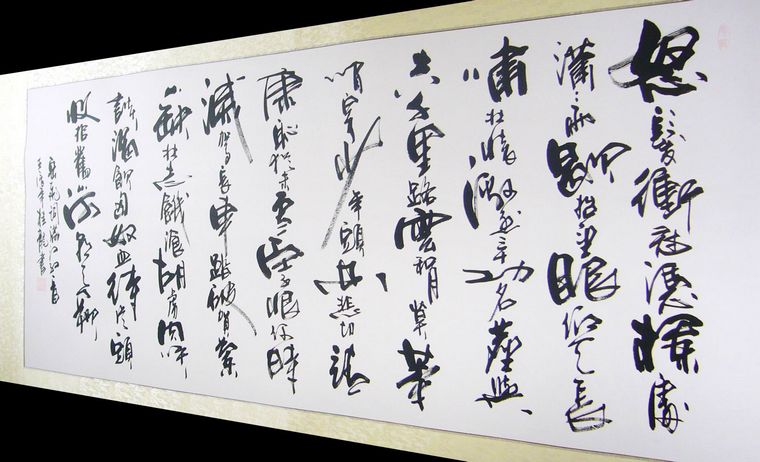 怒髮衝冠憑欄處
瀟瀟雨歇抬望眼仰天長
嘯壯懷激烈三十功名塵與
土八千里路雲和月莫等
閒白了少年頭空悲切靖
康恥猶未雪臣子恨何時
滅駕長車踏破賀蘭
缺壯志飢餐胡虜肉笑
談渴飲匈奴血待從頭
收拾舊山河朝天闕
岳飛詞滿江紅一首
書